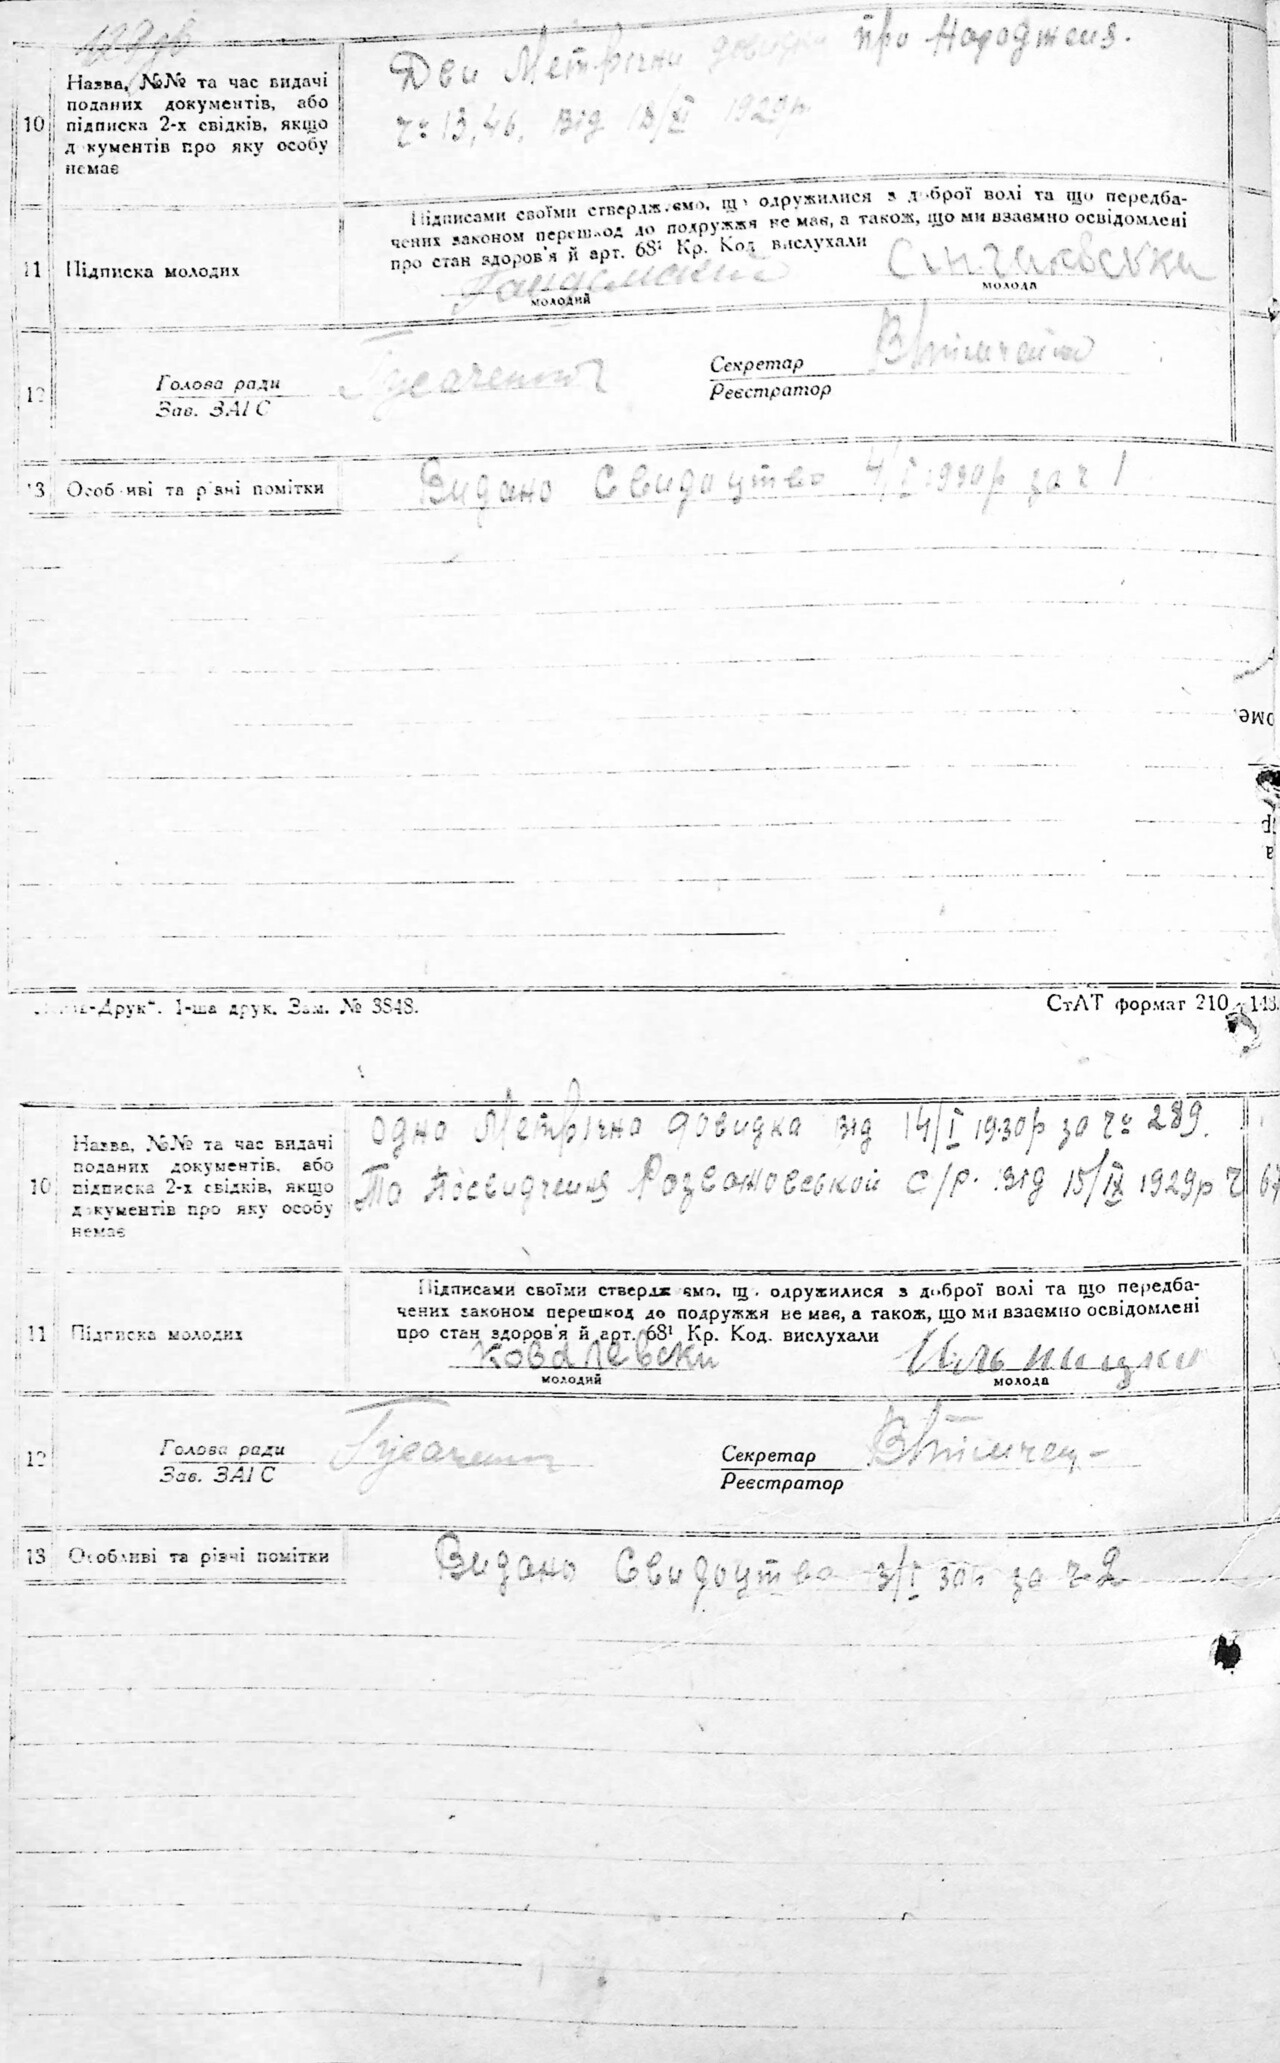 129 зв
Дви Метрични довидки про Народженя.
ч: 13, 46, від 13/XI 1929р.
10
Назва, №№ та час видачі
поданих документів, або
підписка 2-х свідків, якщо
д кументів про яку особу
немає
Підписами своїми стверджуємо, що одружилися з доброї волі та що передба-
чених законом перешкод до подружжя не має, а також, що ми взаємно освідомлені
про стан здоров'я й арт. 68¹ Кр. Код вислухали
11 Підписка молодих
молодий
молода
12
Голова ради
Зав. ЗАГС
Секретар
Реєстратор
13 Особливі та різні помітки
Видано Свидоцтво 4/I 1930р за ч 1
оме,
-Друк". 1-ша друк. Зам. № 3848.
СтАТ формат 210 148.
10
Назва, №№ та час видачі
поданих документів, або
підписка 2-х свідків, якщо
документів про яку особу
немає
Одна Метрічна довидка від 14/I 1930р за ч: 289.
Та Посвидченя Розважовської С/Р. від 15/IX 1929р ч 67
Підписами своїми стверджуємо, що одружилися з доброї волі та що передба-
чених законом перешкод до подружжя не має, а також, що ми взаємно освідомлені
про стан здоров'я й арт. 68¹ Кр. Код. вислухали
11 Підписка молодих
Ковалевски
молодий
молода
12
Голова ради
Зав. ЗАГС
Секретар
Реєстратор
13 Особливі та різні помітки
Видано Свидоцтво 3/I 30р за ч 2